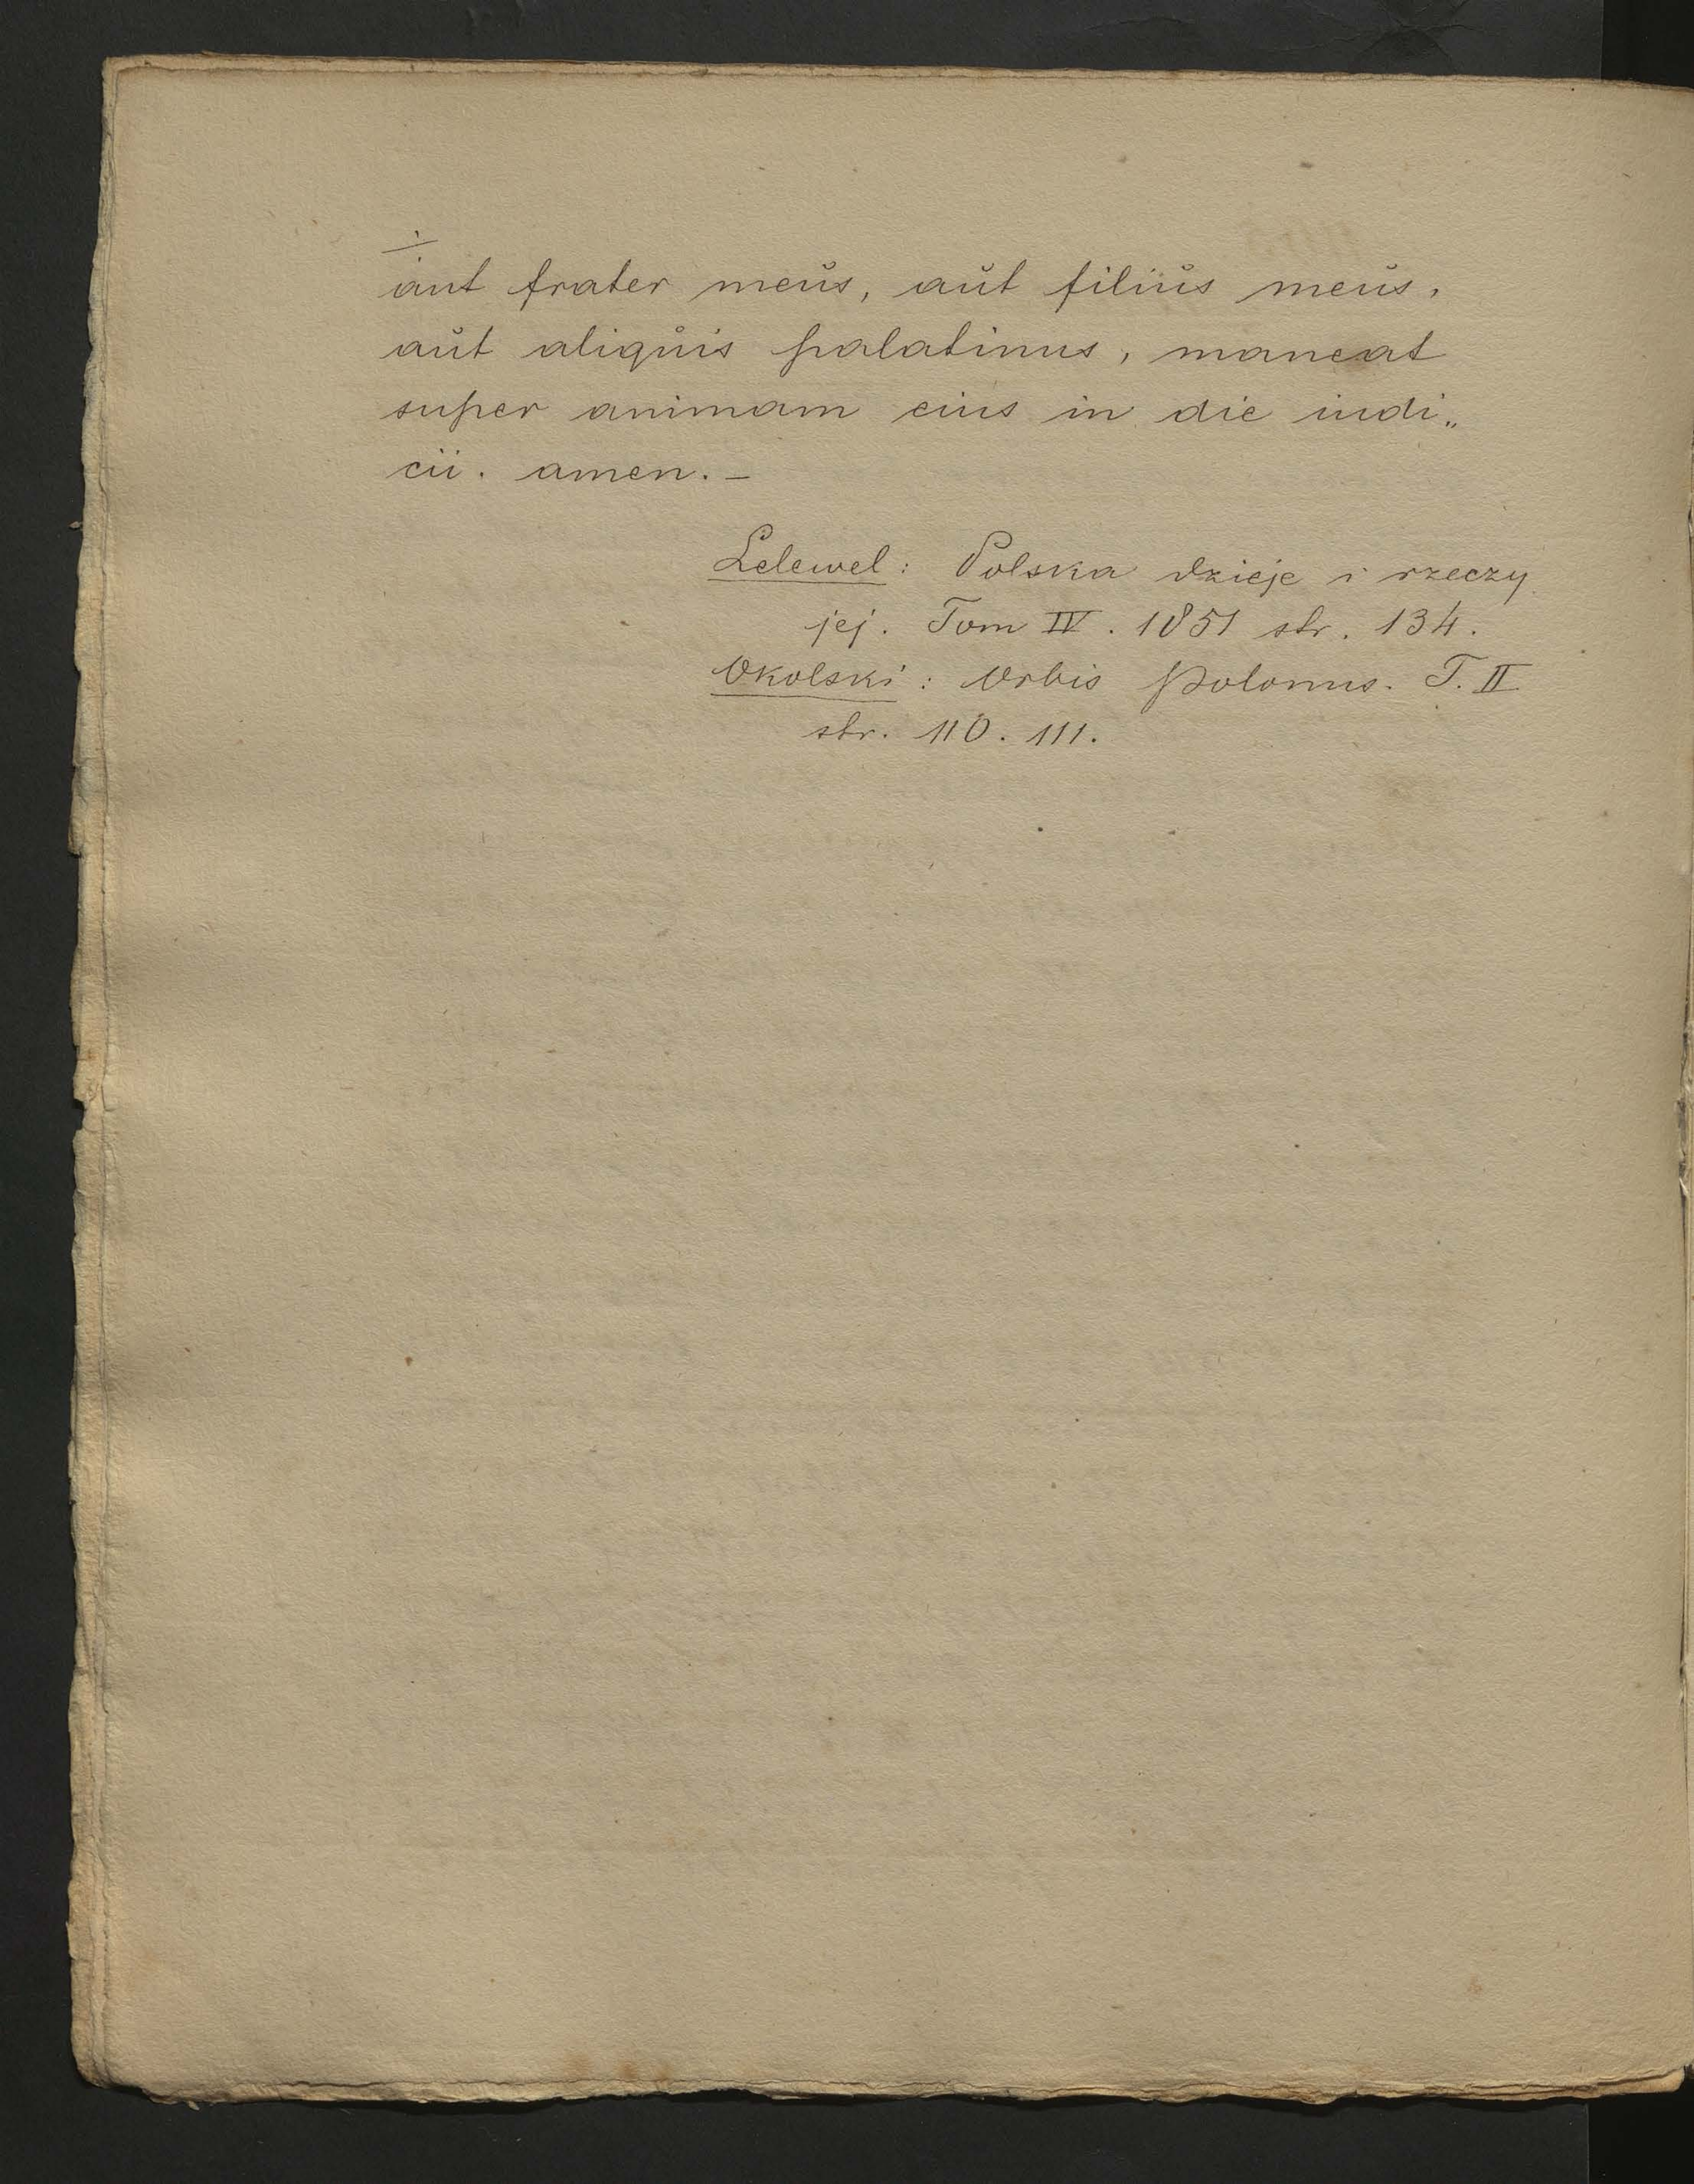 aut frater meŭs, aŭt filiŭs meŭs,
aŭt aliqŭis palatinus, maneat
super animam eius in die iudi„
cii. amen. –
Lelewel: Polska dzieje i rzeczy
jej. Tom IV. 1851 str. 134.
Okolski: Orbis Polonus. T. II
str. 110. 111.